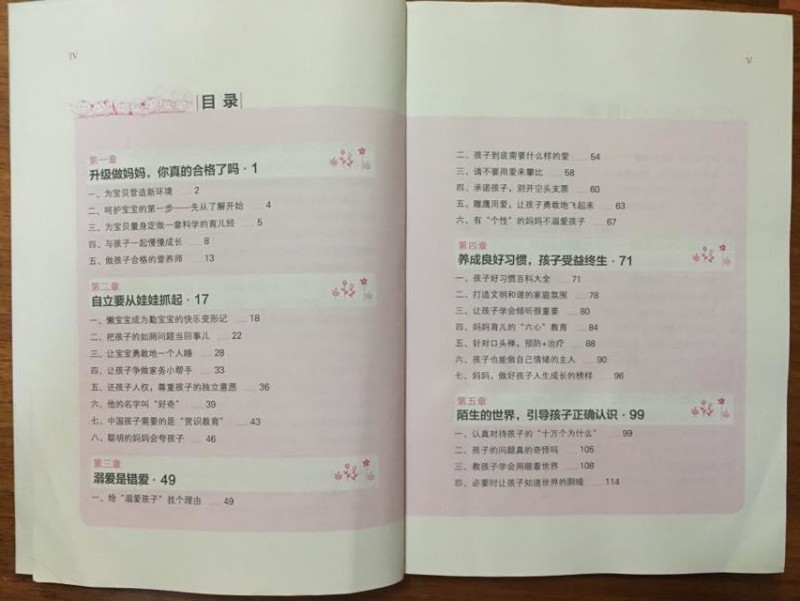 IV
目录
第一章
升级做妈妈，你真的合格了吗·1
一、为宝贝营造新环境 2
二、呵护宝宝的第一步——先从了解开始 4
三、为宝贝量身定做一套科学的育儿经 5
四、与孩子一起慢慢成长 8
五、做孩子合格的营养师 13
第二章
自立要从娃娃抓起·17
一、懒宝宝成为勤宝宝的快乐变形记 18
二、把孩子的如厕问题当回事儿 22
三、让宝宝勇敢地一个人睡 28
四、让孩子争做家务小帮手 33
五、还孩子人权，尊重孩子的独立意愿 36
六、他的名字叫“好奇” 39
七、中国孩子需要的是“赏识教育” 43
八、聪明的妈妈会夸孩子 46
第三章
溺爱是错爱·49
一、给“溺爱孩子”找个理由 49
V
二、孩子到底需要什么样的爱 54
三、请不要用爱来攀比 58
四、承诺孩子，别开空头支票 60
五、雕鹰用爱，让孩子勇敢地飞起来 63
六、有“个性”的妈妈不溺爱孩子 67
第四章
养成良好习惯，孩子受益终生·71
一、孩子好习惯百科大全 71
二、打造文明和谐的家庭氛围 78
三、让孩子学会倾听很重要 80
四、妈妈育儿的“六心”教育 84
五、针对口头禅，预防+治疗 88
六、孩子也能做自己情绪的主人 90
七、妈妈，做好孩子人生成长的榜样 96
第五章
陌生的世界，引导孩子正确认识·99
一、认真对待孩子的“十万个为什么” 99
二、孩子的问题真的奇怪吗 105
三、教孩子学会用眼看世界 108
四、必要时让孩子知道世界的阴暗 114